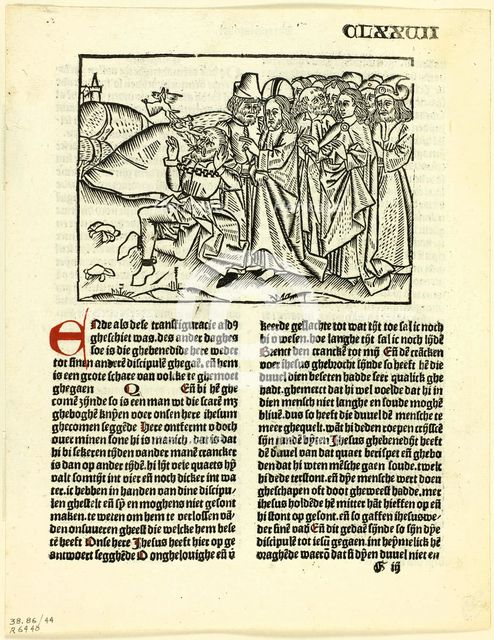 CLXXVII
Ende als dese transfiguracie aldꝰ
gheschiet was. des ander daghes
soe is die ghebenedide here weder
tot sinen andere discipulē ghegaē. eñ hem
is een grote schare van volke te ghemoet
ghegaen Eñ bi hē ghe
comē zijnde so is een man wt die scare mz
gheboghē knyen voer onsen here ihesum
ghecomen seggēde Here ontfermt v doch
ouer minen sone hi is manich. dat is dat
hi bi sekeren tijden vander manē crancker
is dan op ander tijdē. hi lijt vele quaets hy
valt somtijt int vier eñ noch dicker int wa
ter. ic hebben in handen van dine discipu
len ghestelt eñ sy en moghens niet gesont
maken. te weten om hem te verlossen vā
den onsuueren gheest die welcke hem bese
te heeft Onse here Jhesus heeft hier op ge
antwoert segghēde O onghelouighe eñ v
keerde geslachte tot wat tijt toe sal ic noch
bi v wesen. hoe langhe tijt sal ic noch lijdē
Brenct den crancke tot mij Eñ dē crācken
voer ihesus ghebrocht sijnde so heeft hē die
duuel dien beseten hadde seer qualick ghe
hadt. ghemerct dat hi wel voelde dat hi in
dien mensche niet langher en soude moghē
bliuē. dus so heeft die duuel dē mensche te
meer ghequelt. wāt hi deden roepen crijsscē
Jhesus ghebenedijt heeft
dē duuel van dat quaet berispet eñ ghebo
den dat hi wten mēsche gaen soude. twelc
hi dede terstont. eñ dye mensche wert doen
gheschapen oft doot gheweest hadde. mer
ihesus holdēde hē mitter hāt hieffen op eñ
hi stont op gesont. eñ so gaffen ihesus we
der sinē vad Eñ dit gedaē sijnde so sijn dye
discipulē tot iesū gegaen. int heymelick hē
vraghēde waerō dat si dyen duuel niet en
38.86/44
R6448